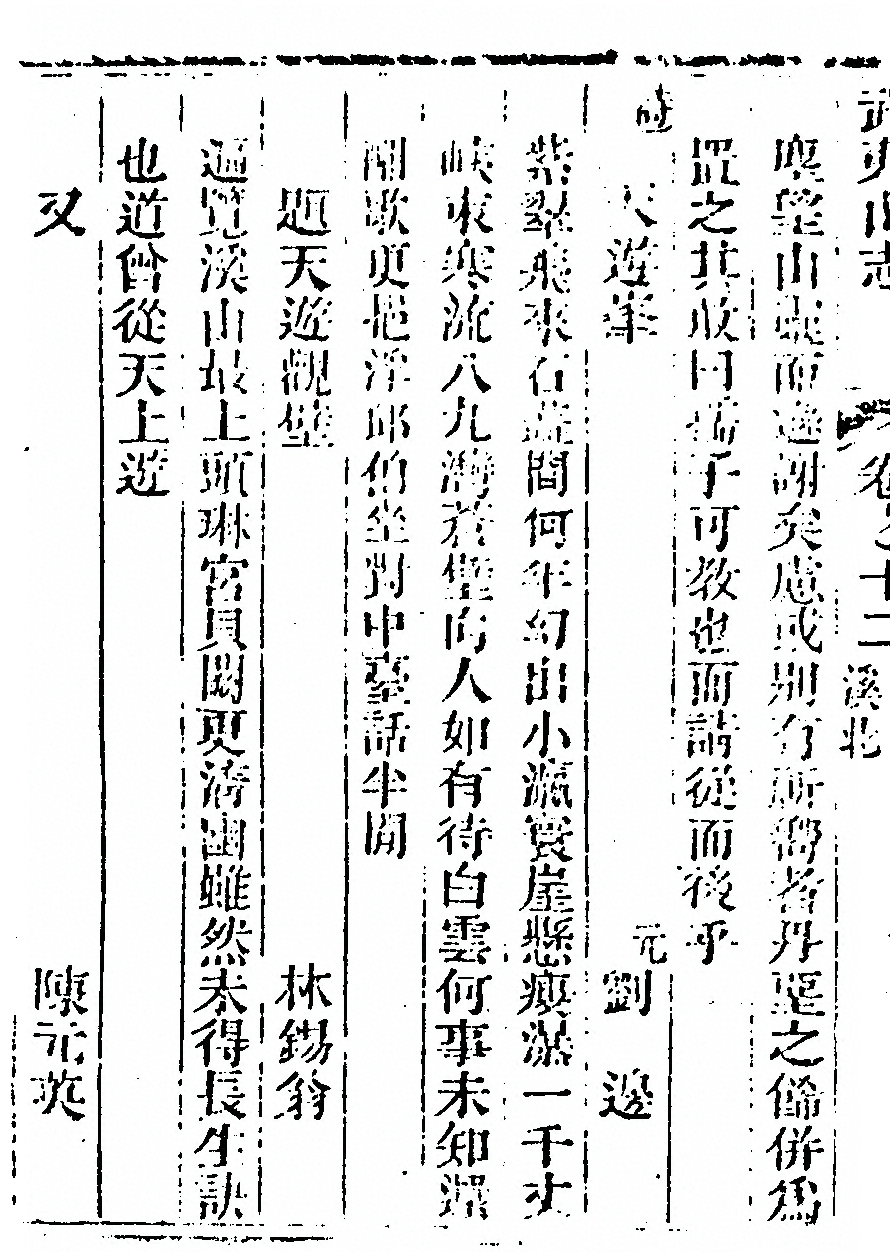 武夷山志 卷之十二 溪北
塵望山靈而遙謝矣慮或別有所 者丹 之 併爲
置之其敢曰孺子可教也而請從而後乎
詩 天遊峯 元 劉邊
紫翠飛來石 間何年幻出小瀛寰崖懸瘦瀑一千丈
峽束寒流八九灣蒼壁向人如有待白雲何事未知還
闌歌更挹浮邱伯坐對中臺話半閒
題天遊觀壁 林錫翁
遍覽溪山最上頭琳宮貝闕更清幽雖然未得長生訣
也道曾從天上遊
又 陳元英